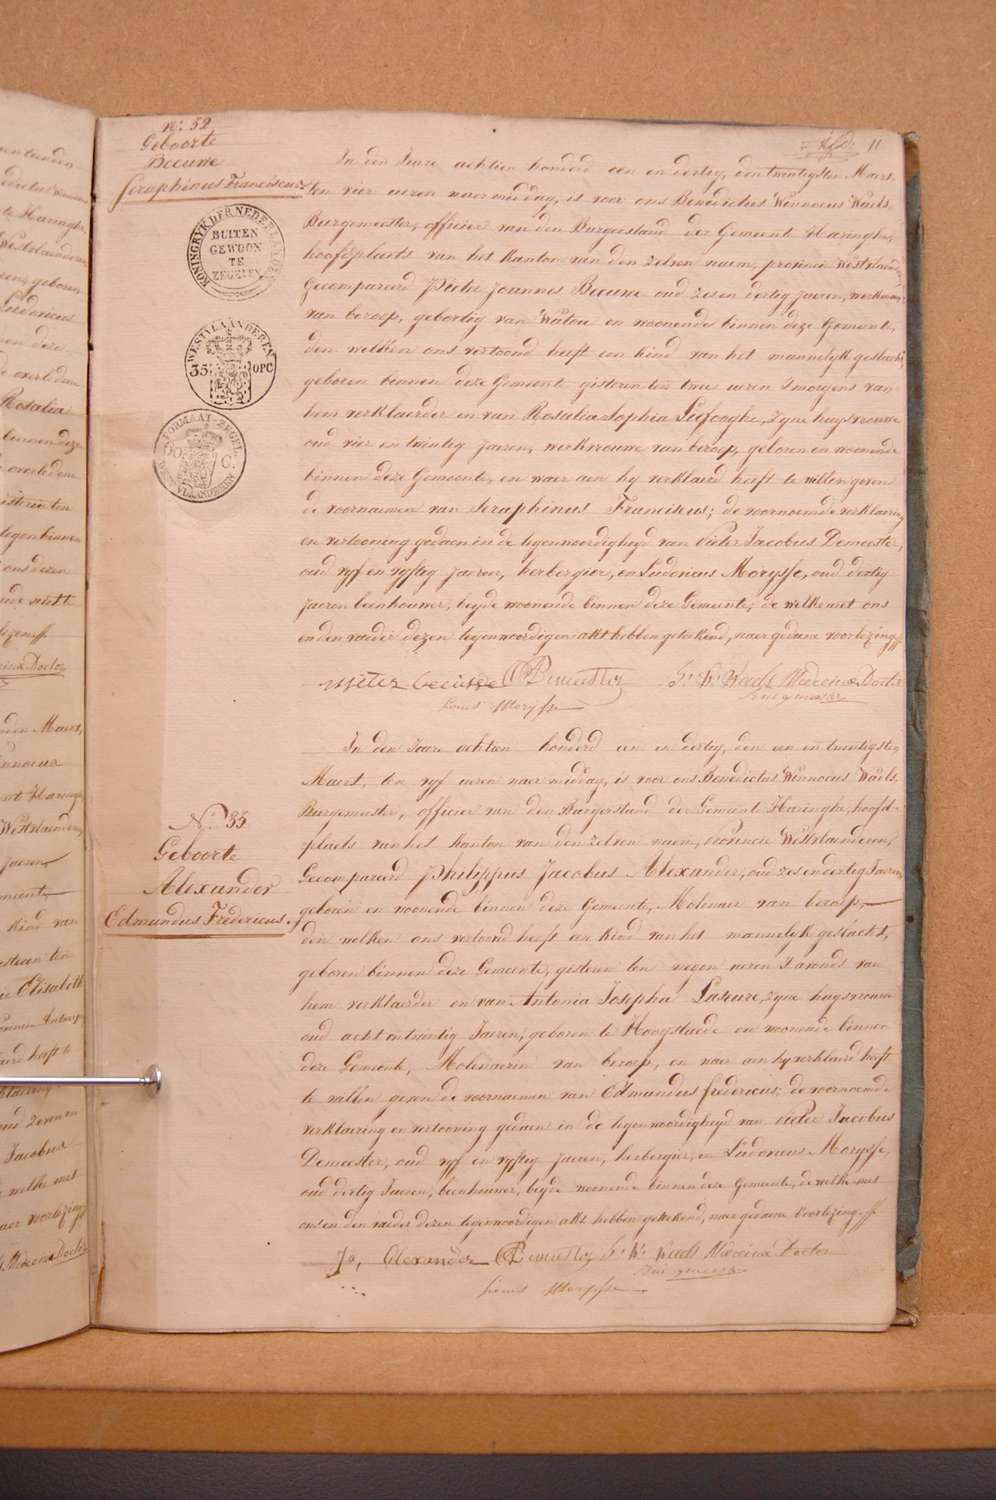 11
N.º 32
Geboorte
Beeuwe
Seraphinus Franciscus
KONINGRYK DER NEDERLANDEN
BUITEN
GEWOON
TE
ZEGELEN
WESTVLAANDEREN
35 OPC
FORMAAT-ZEGEL
WEST VLAANDEREN
In den Jaere achtien honderd een en dertig, den twintigsten Maert
ten vier uren naermiddag, is voor ons Benedictus Winnocus Waels
Burgemeester, officier van den Burgerstand der Gemeente Haringhe,
hoofdplaets van het kanton van den zelven naem, provincie Westvlaenderen
Gecompareerd Pieter Joannes Beeuwe oud zes en dertig jaeren, werkman
van beroep, gebortig van Watou en woonende binnen deze Gemeente,
den welken ons vertoond heeft een kind van het mannelyk geslacht,
geboren binnen deze Gemeente gisteren ten twee uren smorgens van
hem verklaerder en van Rosalia Sophia Lefooghe, zyne huysvrouwe
oud vier en twintig jaeren, werkvrouwe van beroep, geboren en woonende
binnen deze Gemeente, en waer aen hy verklaerd heeft te willen geven
de voornaemen van Seraphinus Franciscus; de voornoemde verklaering
en vertooning gedaen in de tegenwoordigheyd van Pieter Jacobus Demeester,
oud vyf en vyftig jaeren, herbergier, en Ludovicus Morysse, oud dertig
jaeren beenhouwer, beyde woonende binnen deze Gemeente; de welke met ons
en den vaeder dezen tegenwoordigen akt hebben geteekend, naer gedaene voorlezing
Pieter beeuwe Demeester B. W. Waels Medecinæ Doctor
Burgemeester
Louis Morysse
N.º 33
Geboorte
Alexander
Edmundus Fredericus.
In den Jaere achtien honderd een en dertig, den een en twintigsten
Maert, ten vyf uren naer middag, is voor ons Benedictus Winnocus Waels
Burgemeester, officier van den Burgerstand der Gemeente Haringhe, hoofd-
plaets van het kanton van den zelven naem, provincie Westvlaenderen,
Gecompareerd Philippus Jacobus Alexander, oud zes en dertig Jaeren,
geboren en woonende binnen deze Gemeente, Molenaer van beroep,
den welken ons vertoond heeft een kind van het mannelyk geslacht,
geboren binnen deze Gemeente, gisteren ten negen uren s'avonds van
hem verklaerder en van Antonia Josepha Laseure, zyne huysvrouw
oud acht en twintig Jaeren, geboren te Hoogstaede en woonende binnen
deze Gemeente, Molenaerin van beroep, en waer aen hy verklaerd heeft
te willen geven de voornaemen van Edmundus fredericus; de voornoemde
verklaering en vertooning gedaen in de tegenwoordigheyd van Pieter Jacobus
Demeester, oud vyf en vyftig jaeren, herbergier, en Ludovicus Morysse,
oud dertig Jaeren, beenhouwer, beyde woonende binnen deze Gemeente, de welke met
ons en den vaeder dezen tegenwoordigen akt hebben geteekend, naer gedaene voorlezing
Alexander Demeester B. W. Waels Medecinæ Doctor
Burgemeester
Louis Morysse